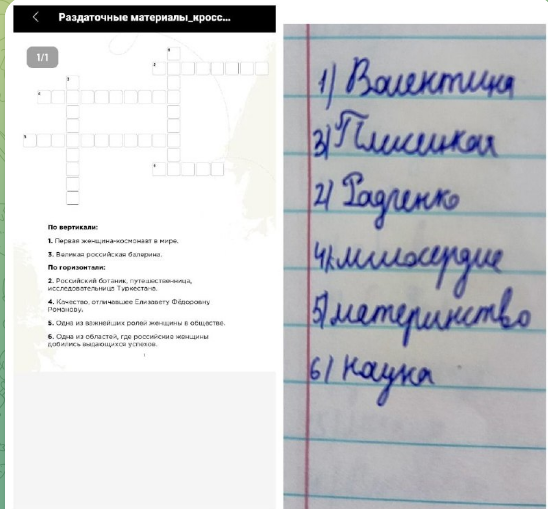 Раздаточные материалы_кросс...
1/1
По вертикали:
1. Первая женщина-космонавт в мире.
3. Великая российская балерина.
По горизонтали:
2. Российский ботаник, путешественница,
исследовательница Туркестана.
4. Качество, отличавшее Елизавету Фёдоровну
Романову.
5. Одна из важнейших ролей женщины в обществе.
6. Одна из областей, где российские женщины
добились выдающихся успехов.
1) Валентина
3) Плисецкая
2) Радченко
4) милосердие
5) материнство
6) наука